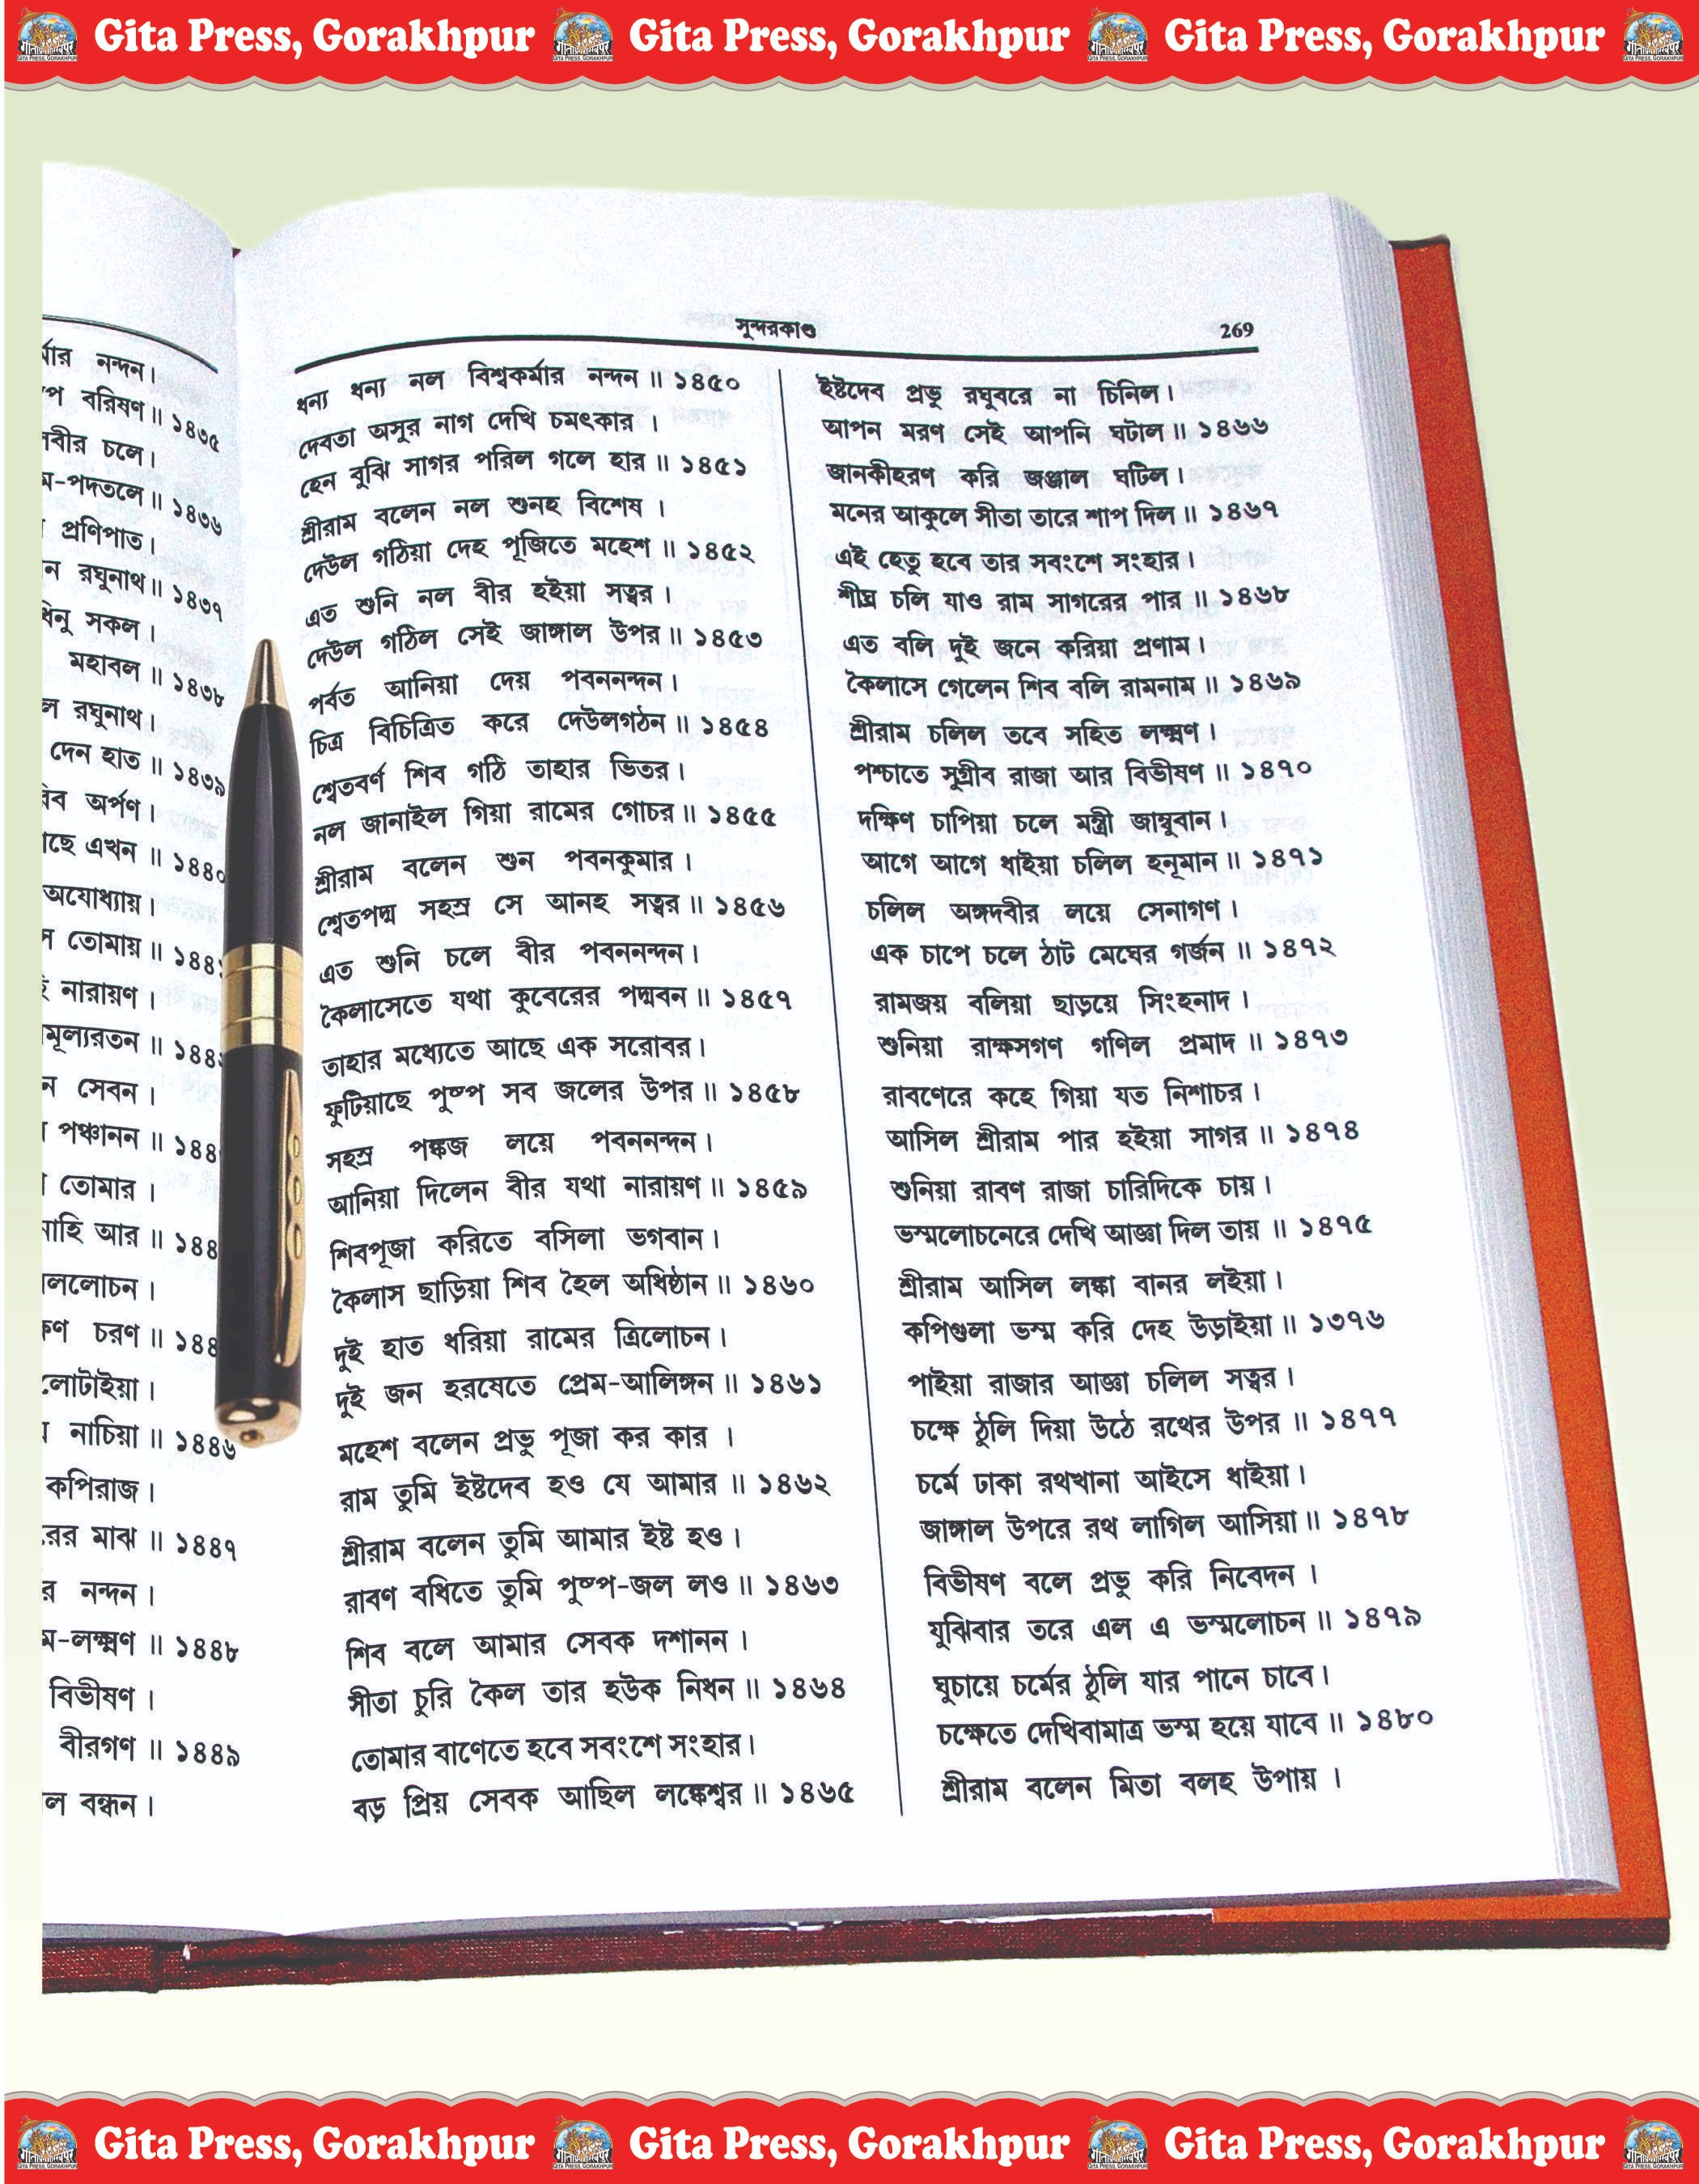 Gita Press, Gorakhpur Gita Press, Gorakhpur Gita Press, Gorakhpur
নন্দন।
বরিষণ॥ ১৪৩৫
চলে।
পদতলে॥ ১৪৩৬
প্রণিপাত।
রঘুনাথ॥ ১৪৩৭
সকল।
মহাবল॥ ১৪৩৮
রঘুনাথ।
দেন হাত॥ ১৪৩৯
অর্পণ।
এখন॥ ১৪৪০
অযোধ্যায়।
তোমায়॥
নারায়ণ।
সেবন।
পঞ্চানন॥
তোমার।
আর॥
চরণ॥
নাচিয়া॥ ১৪৪৬
কপিরাজ।
মাঝ॥ ১৪৪৭
নন্দন।
লক্ষ্মণ॥ ১৪৪৮
বিভীষণ।
বীরগণ॥ ১৪৪৯
বন্ধন।
সুন্দরকাণ্ড 269
ধন্য ধন্য নল বিশ্বকর্মার নন্দন॥ ১৪৫০
দেবতা অসুর নাগ দেখি চমৎকার।
হেন বুঝি সাগর পরিল গলে হার॥ ১৪৫১
শ্রীরাম বলেন নল শুনহ বিশেষ।
দেউল গঠিয়া দেহ পূজিতে মহেশ॥ ১৪৫২
এত শুনি নল বীর হইয়া সত্বর।
দেউল গঠিল সেই জাঙ্গাল উপর॥ ১৪৫৩
পর্বত আনিয়া দেয় পবননন্দন।
চিত্র বিচিত্রিত করে দেউলগঠন॥ ১৪৫৪
শ্বেতবর্ণ শিব গঠি তাহার ভিতর।
নল জানাইল গিয়া রামের গোচর॥ ১৪৫৫
শ্রীরাম বলেন শুন পবনকুমার।
শ্বেতপদ্ম সহস্র সে আনহ সত্বর॥ ১৪৫৬
এত শুনি চলে বীর পবননন্দন।
কৈলাসেতে যথা কুবেরের পদ্মবন॥ ১৪৫৭
তাহার মধ্যেতে আছে এক সরোবর।
ফুটিয়াছে পুষ্প সব জলের উপর॥ ১৪৫৮
সহস্র পঙ্কজ লয়ে পবননন্দন।
আনিয়া দিলেন বীর যথা নারায়ণ॥ ১৪৫৯
শিবপূজা করিতে বসিলা ভগবান।
কৈলাস ছাড়িয়া শিব হৈল অধিষ্ঠান॥ ১৪৬০
দুই হাত ধরিয়া রামের ত্রিলোচন।
দুই জন হরষেতে প্রেম-আলিঙ্গন॥ ১৪৬১
মহেশ বলেন প্রভু পূজা কর কার।
রাম তুমি ইষ্টদেব হও যে আমার॥ ১৪৬২
শ্রীরাম বলেন তুমি আমার ইষ্ট হও।
রাবণ বধিতে তুমি পুষ্প-জল লও॥ ১৪৬৩
শিব বলে আমার সেবক দশানন।
সীতা চুরি কৈল তার হউক নিধন॥ ১৪৬৪
তোমার বাণেতে হবে সবংশে সংহার।
বড় প্রিয় সেবক আছিল লঙ্কেশ্বর॥ ১৪৬৫
ইষ্টদেব প্রভু রঘুবরে না চিনিল।
আপন মরণ সেই আপনি ঘটাল॥ ১৪৬৬
জানকীহরণ করি জঞ্জাল ঘটিল।
মনের আকুলে সীতা তারে শাপ দিল॥ ১৪৬৭
এই হেতু হবে তার সবংশে সংহার।
শীঘ্র চলি যাও রাম সাগরের পার॥ ১৪৬৮
এত বলি দুই জনে করিয়া প্রণাম।
কৈলাসে গেলেন শিব বলি রামনাম॥ ১৪৬৯
শ্রীরাম চলিল তবে সহিত লক্ষ্মণ।
পশ্চাতে সুগ্রীব রাজা আর বিভীষণ॥ ১৪৭০
দক্ষিণ চাপিয়া চলে মন্ত্রী জাম্বুবান।
আগে আগে ধাইয়া চলিল হনূমান॥ ১৪৭১
চলিল অঙ্গদবীর লয়ে সেনাগণ।
এক চাপে চলে ঠাট মেঘের গর্জন॥ ১৪৭২
রামজয় বলিয়া ছাড়য়ে সিংহনাদ।
শুনিয়া রাক্ষসগণ গণিল প্রমাদ॥ ১৪৭৩
রাবণেরে কহে গিয়া যত নিশাচর।
আসিল শ্রীরাম পার হইয়া সাগর॥ ১৪৭৪
শুনিয়া রাবণ রাজা চারিদিকে চায়।
ভস্মলোচনেরে দেখি আজ্ঞা দিল তায়॥ ১৪৭৫
শ্রীরাম আসিল লঙ্কা বানর লইয়া।
কপিগুলা ভস্ম করি দেহ উড়াইয়া॥ ১৩৭৬
পাইয়া রাজার আজ্ঞা চলিল সত্বর।
চক্ষে ঠুলি দিয়া উঠে রথের উপর॥ ১৪৭৭
চর্মে ঢাকা রথখানা আইসে ধাইয়া।
জাঙ্গাল উপরে রথ লাগিল আসিয়া॥ ১৪৭৮
বিভীষণ বলে প্রভু করি নিবেদন।
যুঝিবার তরে এল এ ভস্মলোচন॥ ১৪৭৯
ঘুচায়ে চর্মের ঠুলি যার পানে চাবে।
চক্ষেতে দেখিবামাত্র ভস্ম হয়ে যাবে॥ ১৪৮০
শ্রীরাম বলেন মিতা বলহ উপায়।
Gita Press, Gorakhpur Gita Press, Gorakhpur Gita Press, Gorakhpur